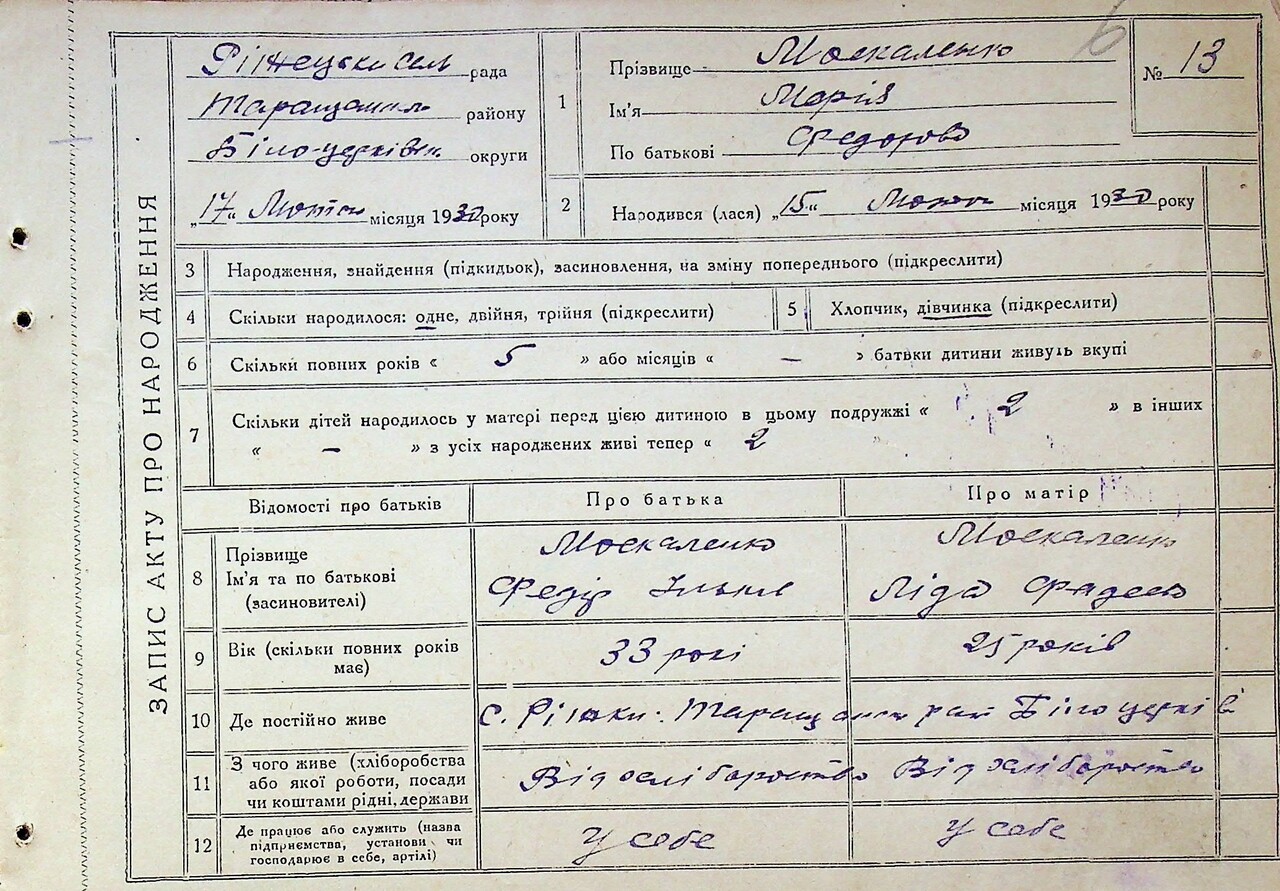 ЗАПИС АКТУ ПРО НАРОДЖЕННЯ
6
сель рада
Таращанськ району
Біло-церківськ округи
„17“ Лютня місяця 1930 року
1
Прізвище Москаленко
Ім'я Марія
По батькові Федорова
№ 13
2
Народився (лася) „15“ Лютня місяця 1930 року
3 Народження, знайдення (підкидьок), засиновлення, на зміну попереднього (підкреслити)
4 Скільки народилося: одне, двійня, трійня (підкреслити)
5 Хлопчик, дівчинка (підкреслити)
6 Скільки повних років « 5 » або місяців « — » батьки дитини живуть вкупі
7 Скільки дітей народилось у матері перед цією дитиною в цьому подружжі « 2 » в інших
« — » з усіх народжених живі тепер « 2 »
Відомості про батьків Про батька Про матір
8 Прізвище
Ім'я та по батькові
(засиновителі)
Москаленко
Федір
Москаленко
Ліда Фадеев
9 Вік (скільки повних років
має)
33 рокі
25 років
10 Де постійно живе
с. Таращанськ рай Білоцерків
11 З чого живе (хліборобства
або якої роботи, посади
чи коштами рідні, держави
Від хліборобство
Від хліборобство
12 Де працює або служить (назва
підприємства, установи чи
господарює в себе, артілі)
У себе
У себе